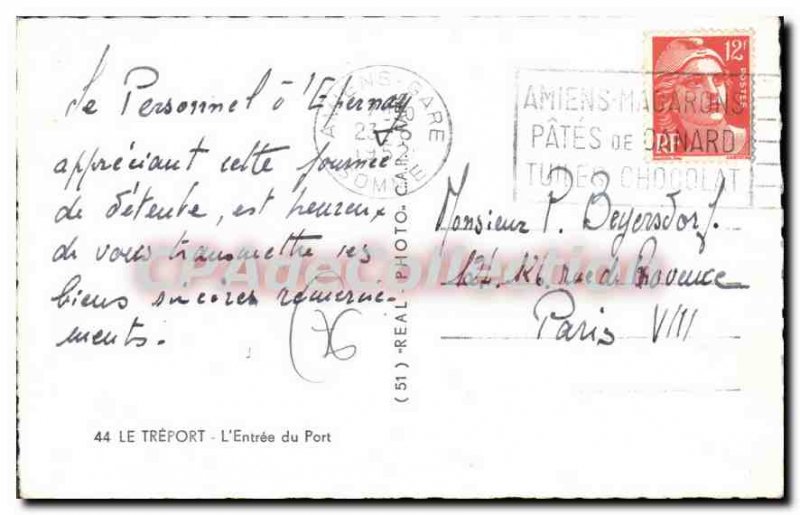 Le Personnel d'Epernay
appréciant cette journée
de détente, est heureux
de vous transmettre ses
biens sincères remercie-
ments.
44 LE TRÉPORT - L'Entrée du Port
(51) - REAL - PHOTO
AMIENS-GARE
SOMME
AMIENS-MACARONS
PÂTÉS DE CANARD
TUILES CHOCOLAT
12F
POSTES
RF
Monsieur P. Beyersdorf
rue de Provence
Paris VIII
CPAdeCollection